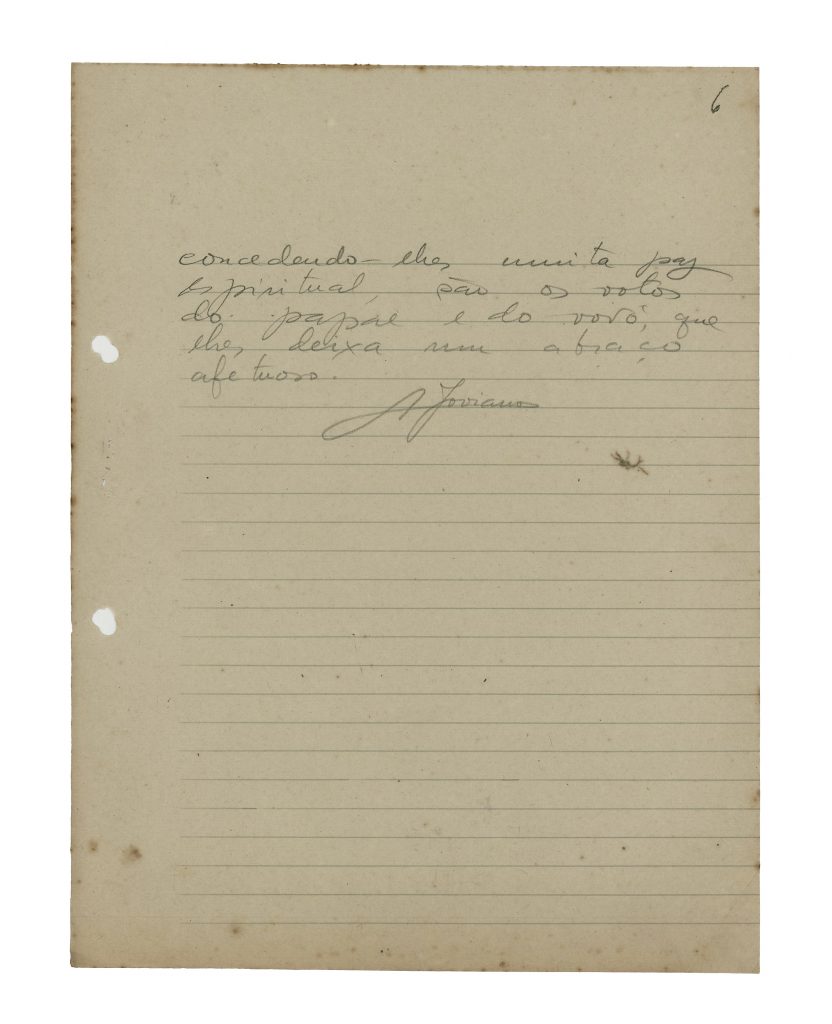 6
concedendo-lhes muita paz
espiritual, são os votos
do papae e do vovô, que
lhes deixa um abraço
afetuoso.
A Joviano